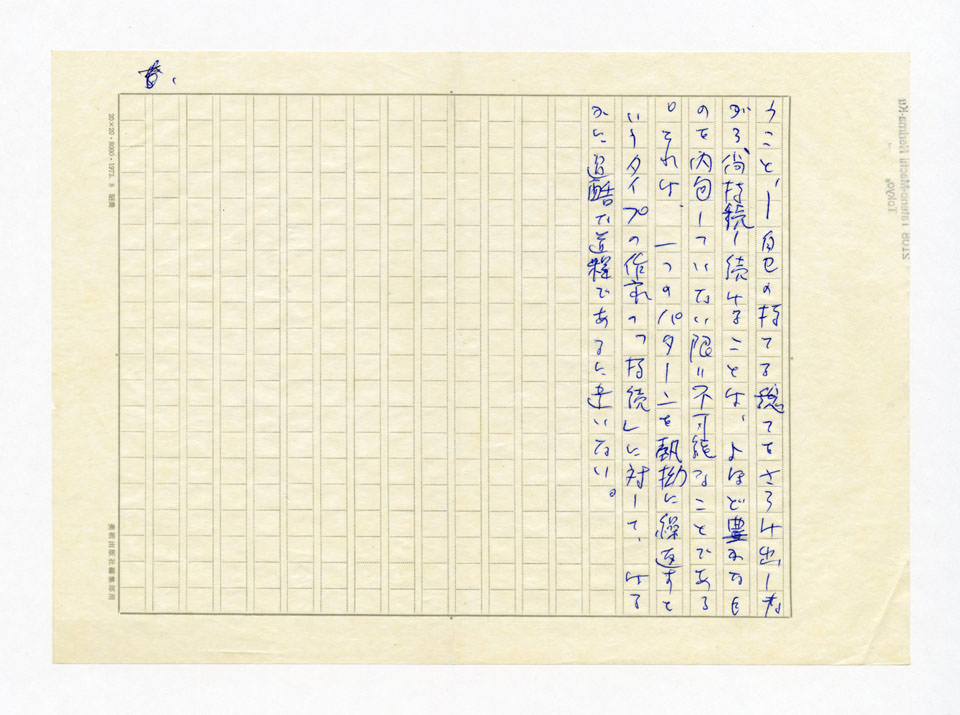 うこと、―自己の持てる総てをさらけ出しな
がら、尚持続し続けることは、よほど豊かなも
のを内包していない限り不可能なことである
。それは、一つのパターンを執拗に繰返すと
いうタイプの作家の「持続」に対して、はる
かに過酷な道程であるに違いない。
20×20・8000・1973. 9
美術出版社編集部用
Tateno-Machi Nerima-Ku
Tokyo,